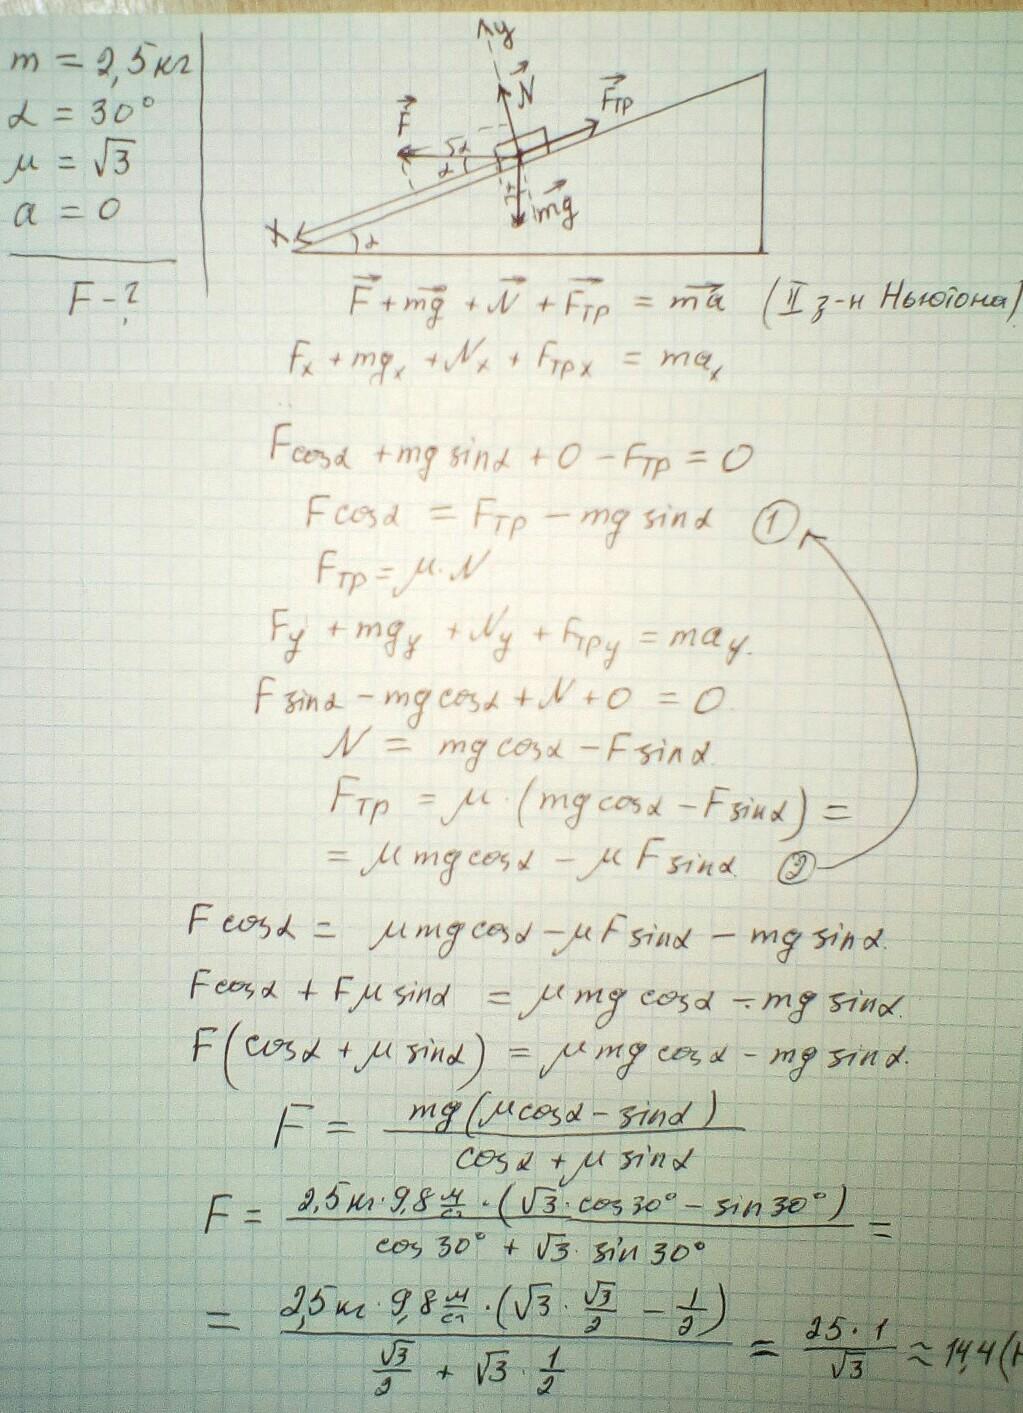 m = 2,5 кг
α = 30°
μ = √3
a = 0
F - ?
y
N
Fтр
F
α
α
mg
x
α
F + mg + N + Fтр = ma (II з-н Ньютона)
Fx + mgx + Nx + Fтрx = max
F cosα + mg sinα + 0 - Fтр = 0
F cosα = Fтр - mg sinα ①
Fтр = μ · N
Fy + mgy + Ny + Fтрy = may.
F sinα - mg cosα + N + 0 = 0
N = mg cosα - F sinα.
Fтр = μ · (mg cosα - F sinα) =
= μ mg cosα - μ F sinα. ②
F cosα = μ mg cosα - μ F sinα - mg sinα.
F cosα + F μ sinα = μ mg cosα - mg sinα.
F (cosα + μ sinα) = μ mg cosα - mg sinα.
F = mg (μ cosα - sinα) / cosα + μ sinα
F = 2,5 кг · 9,8 м/с² · (√3 · cos 30° - sin 30°) / cos 30° + √3 · sin 30° =
= 2,5 кг · 9,8 м/с² · (√3 · √3/2 - 1/2) / √3/2 + √3 · 1/2 = 25 · 1 / √3 ≈ 14,4 (Н